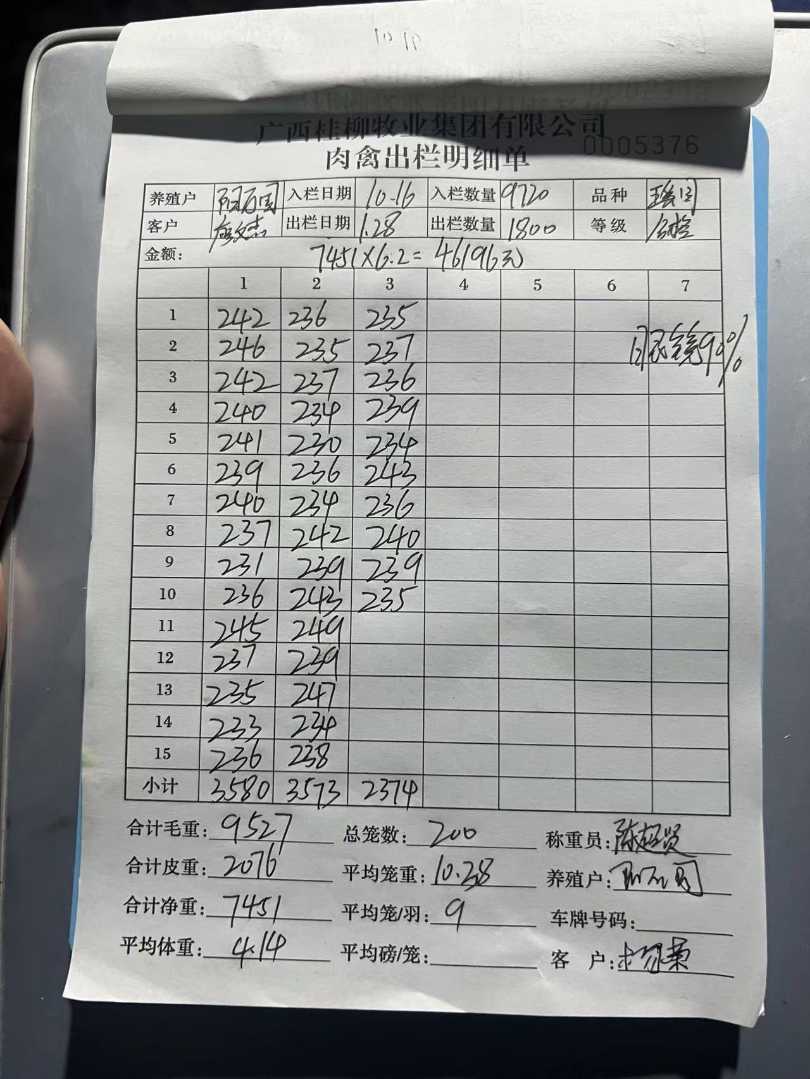 广西桂柳牧业集团有限公司
肉禽出栏明细单 0005376
养殖户 入栏日期 10-16 入栏数量 9720 品种
客户 出栏日期 1.28 出栏数量 1800 等级
金额: 7451×6.2=46196元
1 2 3 4 5 6 7
1 242 236 235
2 246 235 237 90%
3 242 237 236
4 240 234 239
5 241 230 234
6 239 236 243
7 240 234 236
8 237 242 240
9 231 239 239
10 236 243 235
11 245 249
12 237 239
13 235 247
14 233 234
15 236 238
小计 3580 3573 2374
合计毛重: 9527 总笼数: 200 称重员: 陈超贤
合计皮重: 2076 平均笼重: 10.38 养殖户:
合计净重: 7451 平均笼/羽: 9 车牌号码:
平均体重: 4.14 平均磅/笼: 客户: